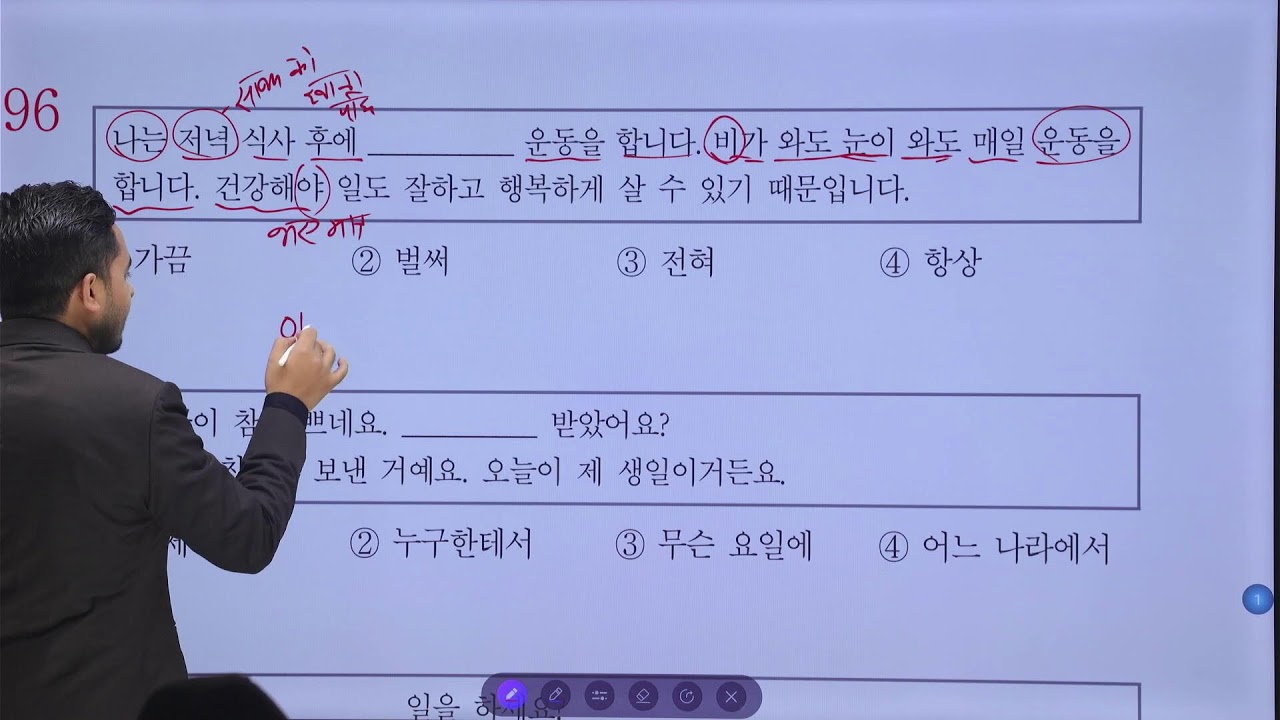 96
나는 저녁 식사 후에 __________ 운동을 합니다. 비가 와도 눈이 와도 매일 운동을
합니다. 건강해야 일도 잘하고 행복하게 살 수 있기 때문입니다.
가끔 ② 벌써 ③ 전혀 ④ 항상
이 참 쁘네요. __________ 받았어요?
보낸 거예요. 오늘이 제 생일이거든요.
② 누구한테서 ③ 무슨 요일에 ④ 어느 나라에서
일을
1